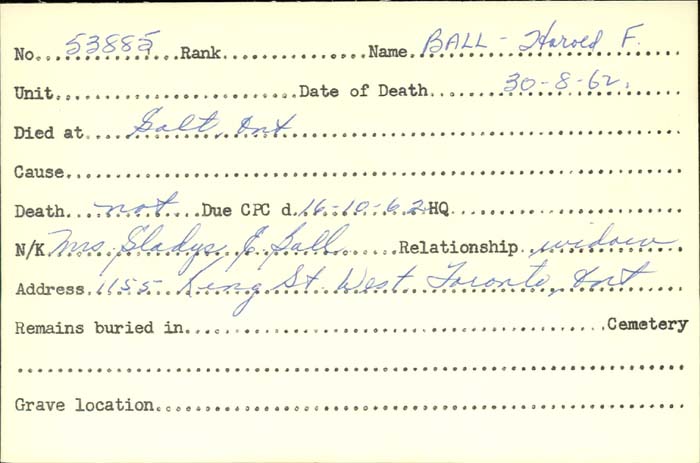 No. 53885 Rank Name BALL - Harold F.
Unit Date of Death 30-8-62.
Died at Galt, Ont
Cause
Death not Due CPC d. 16-10-62 HQ
N/K Mrs Gladys E Ball Relationship widow
Address 1155 King St West Toronto, Ont
Remains buried in Cemetery
Grave location